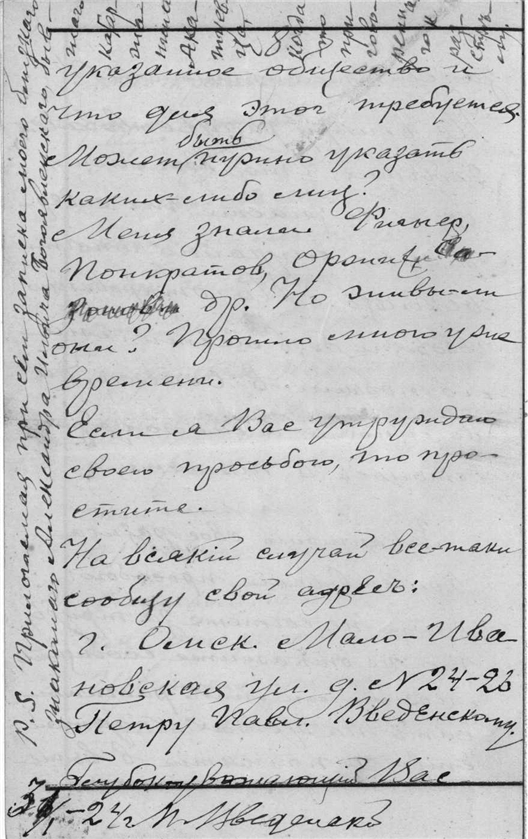 указанное общество и
что для этого требуется.
Может быть нужно указать
каких-либо лиц?
Меня знали Фигнер,
Понкратов,
др. Но живы-ли
они? Прошло много уже
времени.
Если я Вас утруждаю
своею просьбою, то про-
стите.
На всякiй случай все-таки
сообщу свой адрес:
г. Омск. Мало-Ива-
новская ул. д. N 24-26
Петру Павл. Введенскому.
Глубокоуважающий Вас
-24 г П Введенск
P.S. Прилагаемая при сем записка моего близкого
знакомаго Александра Ильича Богоявленского, быв-
шаго
кар
Ака
туев
ца,
когда
это
при
гово
рена
к